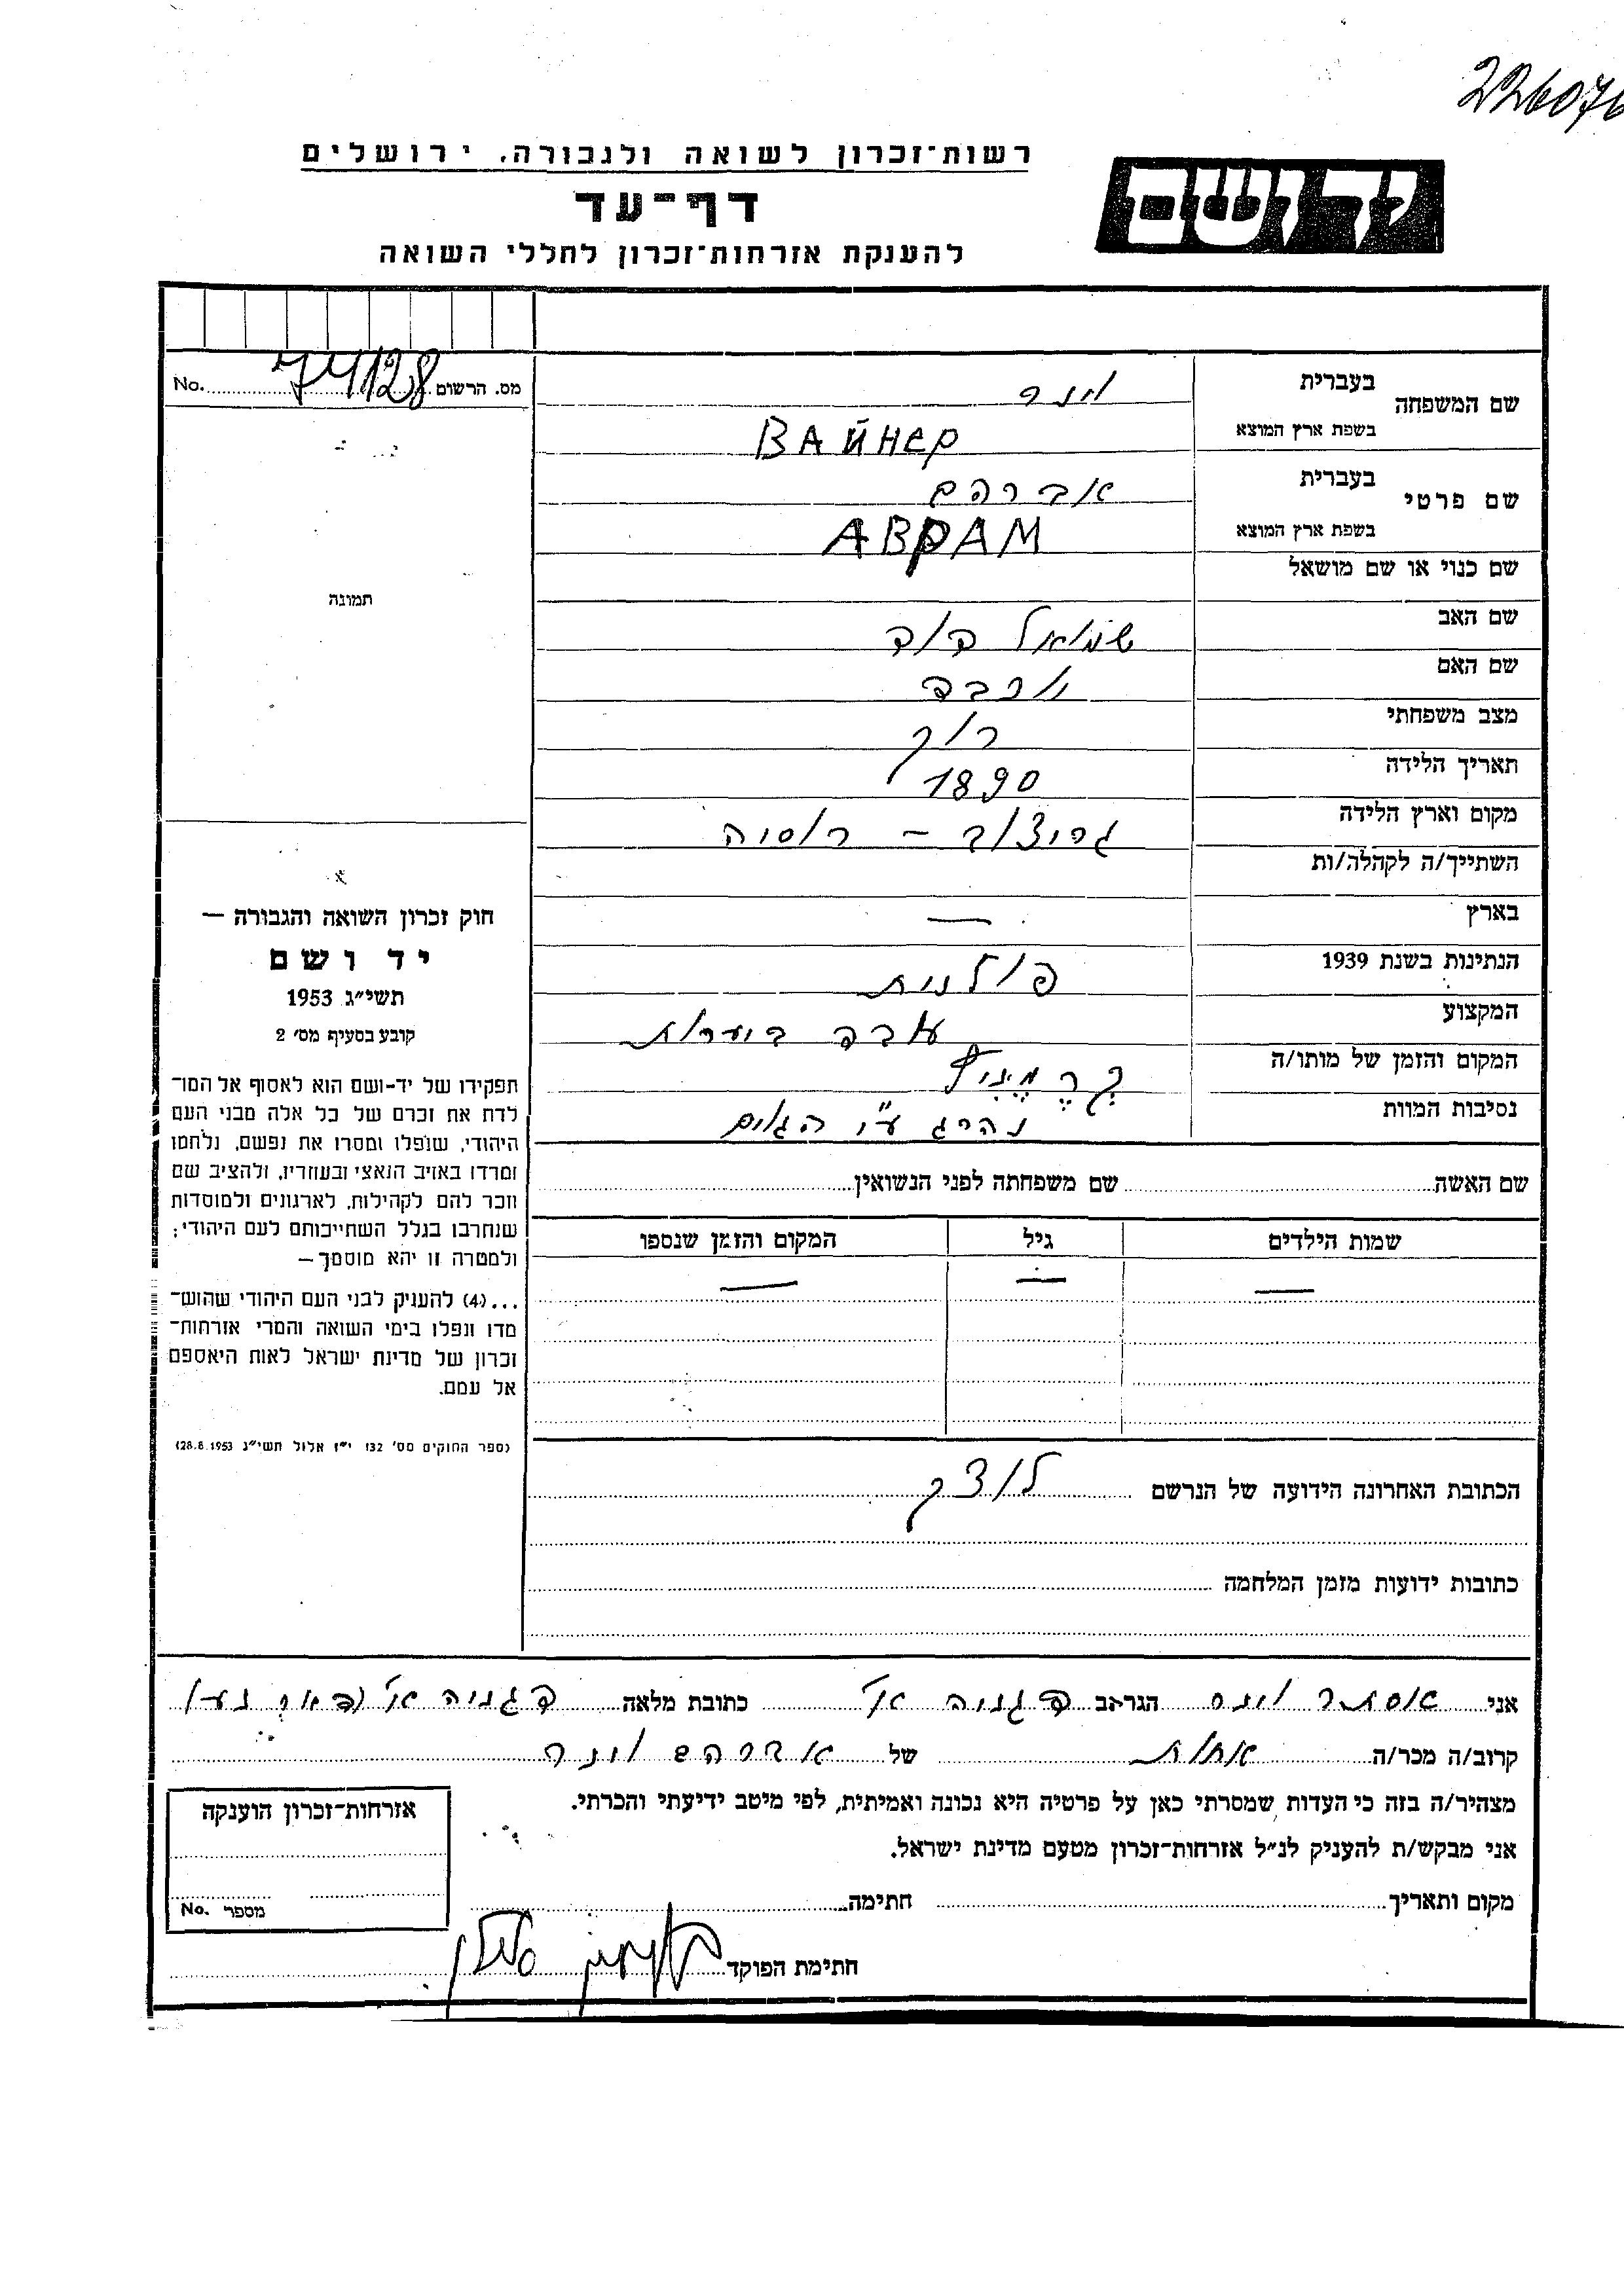 226076
רשות־זכרון לשואה ולגבורה, ירושלים
יד ושם
דף־עד
להענקת אזרחות־זכרון לחללי השואה
מס. הרשום 74128 No.
שם המשפחה
בעברית
וינר
בשפת ארץ המוצא
ВАЙНЕР
שם פרטי
בעברית
אברהם
בשפת ארץ המוצא
АВРАМ
שם כנוי או שם מושאל
תמונה
שם האב
שמואל דוד
שם האם
מצב משפחתי
רוק
תאריך הלידה
1890
מקום וארץ הלידה
גריצוב – רוסיה
השתייך/ה לקהלה/ות
בארץ
—
הנתינות בשנת 1939
פולנית
המקצוע
עבד ביערות
המקום והזמן של מותו/ה
נסיבות המוות
נהרג ע"י הגוים
חוק זכרון השואה והגבורה —
יד ושם
תשי״ג 1953
קובע בסעיף מס׳ 2
תפקידו של יד-ושם הוא לאסוף אל המו־
לדת את זכרם של כל אלה מבני העם
היהודי, שנפלו ומסרו את נפשם, נלחמו
ומרדו באויב הנאצי ובעוזריו, ולהציב שם
וזכר להם לקהילות, לארגונים ולמוסדות
שנחרבו בגלל השתייכותם לעם היהודי;
ולמטרה זו יהא מוסמך —
...(4) להעניק לבני העם היהודי שהוש־
מדו ונפלו בימי השואה והמרי אזרחות־
זכרון של מדינת ישראל לאות היאספם
אל עמם.
(ספר החוקים מס׳ 132 י״ז אלול תשי״ג 28.8.1953)
שם האשה שם משפחתה לפני הנשואין
שמות הילדים גיל המקום והזמן שנספו
— — —
הכתובת האחרונה הידועה של הנרשם לוצק
כתובות ידועות מזמן המלחמה
אני אסתר וינר הגר/ב דגניה א' כתובת מלאה דגניה א' (דאר נע)
קרוב/ה מכר/ה אחות של אברהם וינר
מצהיר/ה בזה כי העדות שמסרתי כאן על פרטיה היא נכונה ואמיתית, לפי מיטב ידיעתי והכרתי.
אני מבקש/ת להעניק לנ״ל אזרחות־זכרון מטעם מדינת ישראל.
מקום ותאריך חתימה
אזרחות־זכרון הוענקה
מספר No.
חתימת הפוקד